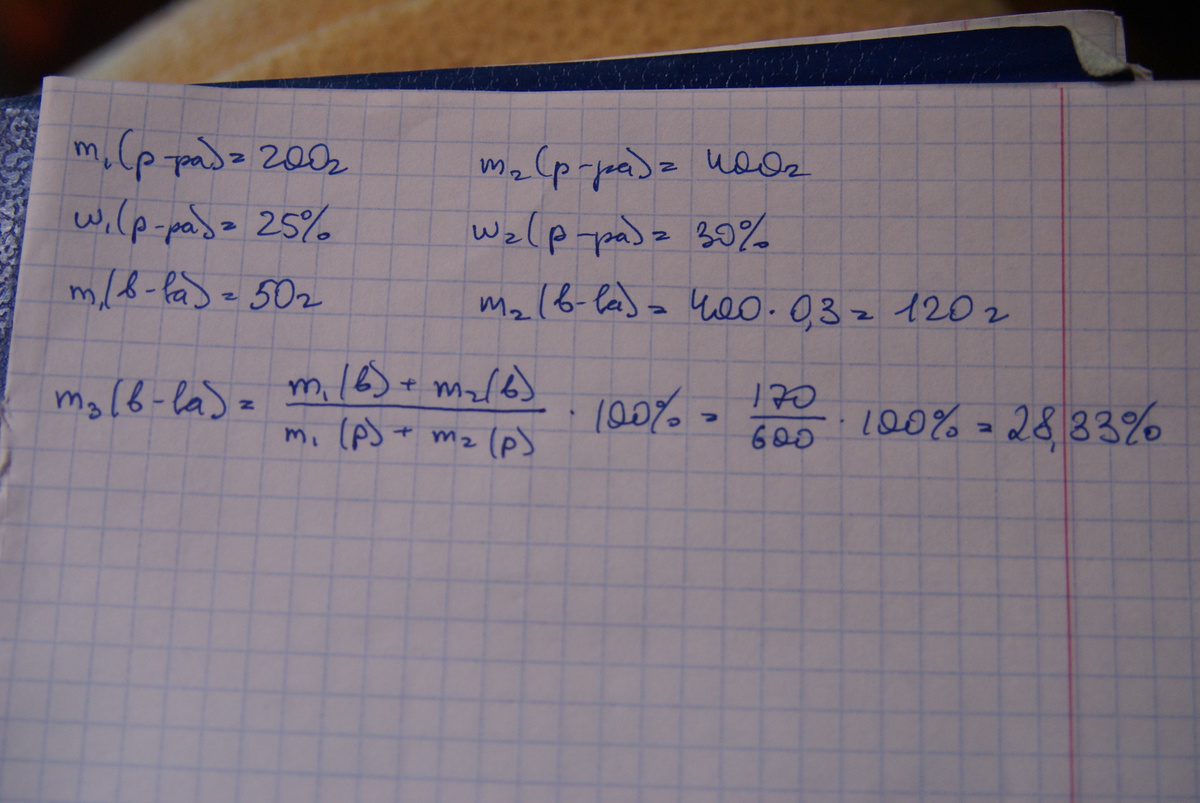 m₁(р-ра) = 200г m₂(р-ра) = 400г
w₁(р-ра) = 25% w₂(р-ра) = 30%
m₁(в-ва) = 50г m₂(в-ва) = 400 · 0,3 = 120г
m₃(в-ва) = (m₁(в) + m₂(в)) / (m₁(р) + m₂(р)) · 100% = 170/600 · 100% = 28,33%